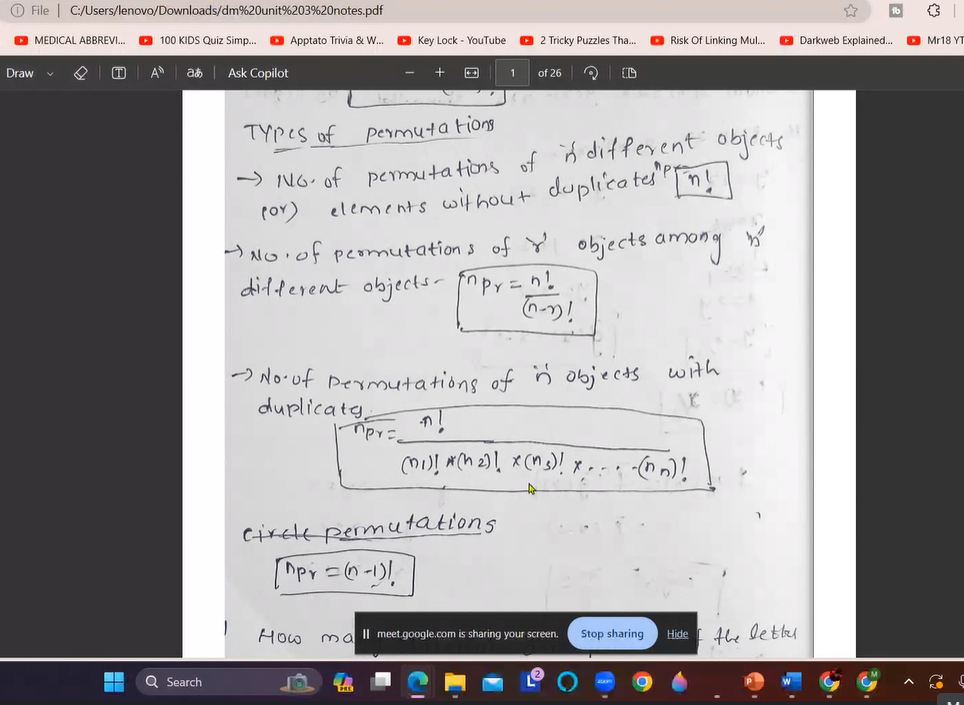 File | C:/Users/lenovo/Downloads/dm%20unit%203%20notes.pdf
MEDICAL ABBREVI... 100 KIDS Quiz Simp... Apptato Trivia & W... Key Lock - YouTube 2 Tricky Puzzles Tha... Risk Of Linking Mul... Darkweb Explained... Mr18 YT
Draw aあ Ask Copilot − + 1 of 26
Types of permutations
→ No. of permutations of 'n' different objects
(or) elements without duplicates nPr n!
→ No. of permutations of 'r' objects among 'n'
different objects- nPr = n!
(n-r)!
→ No. of permutations of 'n' objects with
duplicates.
nPr = n!
(n1)! * (n2)! × (n3)! × .... (nn)!
circle permutations
nPr = (n-1)!
How f the letter
meet.google.com is sharing your screen. Stop sharing Hide
Search